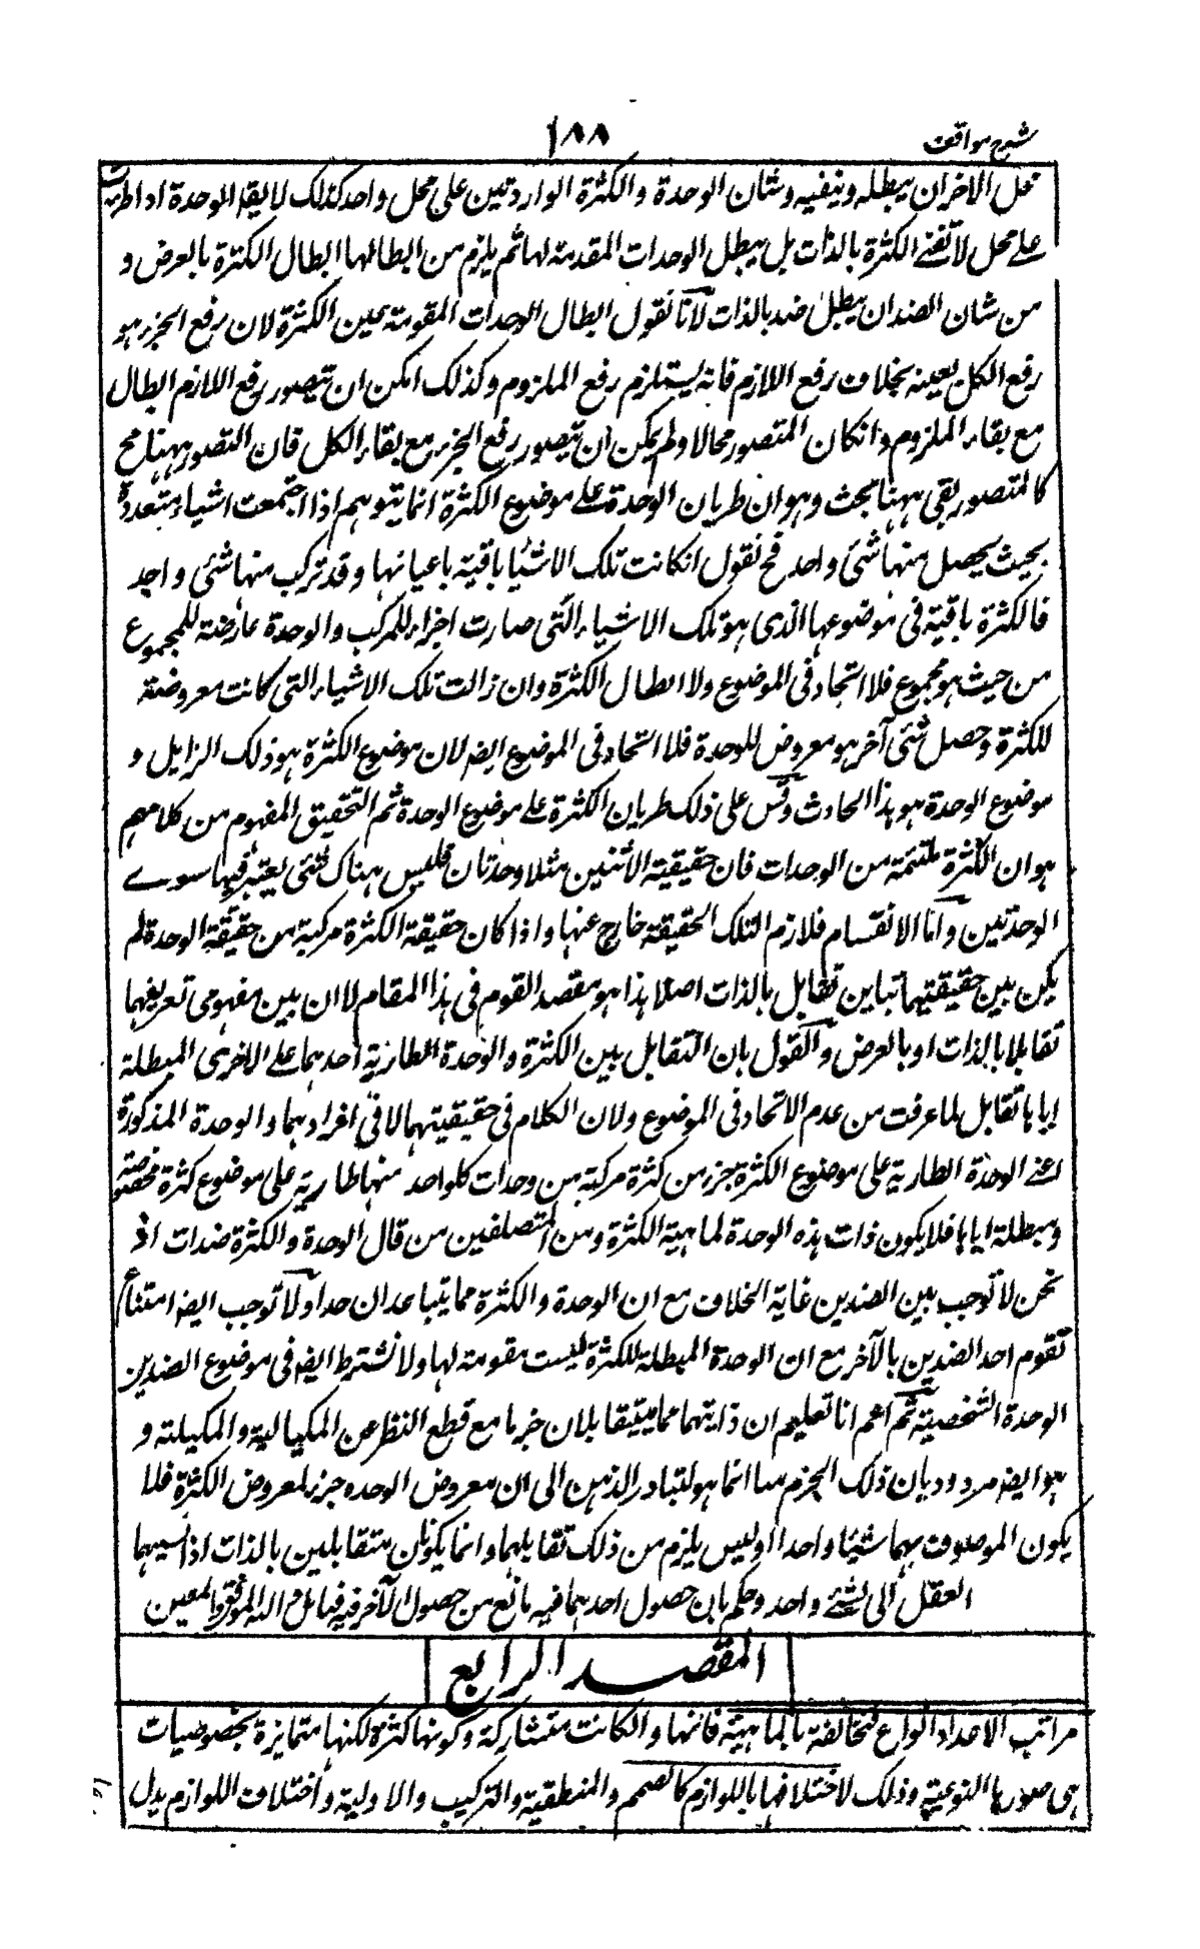 شرح مواقف
١٨٨
محل الاخران يبطله وينفيه وشان الوحدة والكثرة الواردتين على محل واحد كذلك لا يقال الوحدة اذا طرت
على محل لا تنفى الكثرة بالذات بل يبطل الوحدات المقومة لها ثم يلزم من ابطالها ابطال الكثرة بالعرض و
من شان الضد ان يبطل ضده بالذات لانا نقول ابطال الوحدات المقومة عين الكثرة لان رفع الجزء هو
رفع الكل بعينه بخلاف رفع اللازم فانه يستلزم رفع الملزوم وكذلك امكن ان يتصور رفع اللازم ابطال
مع بقاء الملزوم وانكان المتصور محالا ولم يمكن ان يتصور رفع الجزء مع بقاء الكل فان التصور ههنا مح
كالمتصور بقى ههنا بحث وهو ان طريان الوحدة على موضوع الكثرة انما يتوهم اذا اجتمعت اشياء متعددة
بحيث يحصل منها شئ واحد فح نقول انكانت تلك الاشيا باقية باعيانها وقد تركب منها شئ واحد
فالكثرة باقية فى موضوعها الذى هو تلك الاشياء التى صارت اجزاء للمركب والوحدة عارضة للمجموع
من حيث هو مجموع فلا اتحاد فى الموضوع ولا ابطال الكثرة وان زالت تلك الاشياء التى كانت معروضة
للكثرة وحصل شئ آخر هو معروض للوحدة فلا اتحاد فى الموضوع ايضا لان موضوع الكثرة هو ذلك الزايل و
موضوع الوحدة هو هذا الحادث وقس على ذلك طريان الكثرة على موضوع الوحدة ثم التحقيق المفهوم من كلامهم
هو ان الكثرة ملتئمة من الوحدات فان حقيقية الاثنين مثلا وحدتان فليس هناك شئ يعتبر فيها سوے
الوحدتين واما الانقسام فلازم لتلك الحقيقة خارج عنها واذا كان حقيقة الكثرة مركبة من حقيقة الوحدة لم
يكن بين حقيقتيهما تباين تقابل بالذات اصلا هذا هو مقصد القوم فى هذا المقام لا ان بين مفهومى تعريفهما
تقابلا بالذات او بالعرض والقول بان التقابل بين الكثرة والوحدة الطارية احدهما على الاخرى المبطلة
اياها تقابل لما عرفت من عدم الاتحاد فى الموضوع ولان الكلام فى حقيقيتهما لا فى افرادهما والوحدة المذكورة
اعنى الوحدة الطارية على موضوع الكثرة جزء من كثرة مركبة من وحدات كل واحد منها طارية على موضوع كثرة مخصوصة
ومبطلة اياها فلا يكون ذات هذه الوحدة لماهية الكثرة ومن المتصلفين من قال الوحدة والكثرة ضدات اذ
نحن لا نوجب بين الضدين غاية الخلاف مع ان الوحدة والكثرة مما يتباعدان جدا ولا نوجب ايضا امتناع
تقوم احد الضدين بالآخر مع ان الوحدة المبطلة للكثرة ليست مقومة لها ولا نشترط ايضا فى موضوع الضدين
الوحدة الشخصية ثم اعم انا نعليم ان ذاتيهما مما يتقابلان جزما مع قطع النظر عن المكيالية والمكيلة و
هو ايضا مردود بان ذلك الجزم منا انما هو لتبادر الذهن الى ان معروض الوحده جزء لمعروض الكثرة فلا
يكون الموصوف بهما شيئا واحدا وليس يلزم من ذلك تقابلهما وانما يكونان متقابلين بالذات اذا نسبهما
العقل الى شئے واحد وحكم بان حصول احدهما فيه مانع من حصول الآخر فيه فتامل والله الموفق والمعين
المقصد الرابع
مراتب الاعداد انواع متخالفة بالماهية فانها والكانت متشاركة وكونها كثرة لكنها متمايزة بخصوصيات
هى صورها النوعية وذلك لاختلافها باللوازم كالصمم والمنطقية والتركيب والاولية واختلاف اللوازم يدل